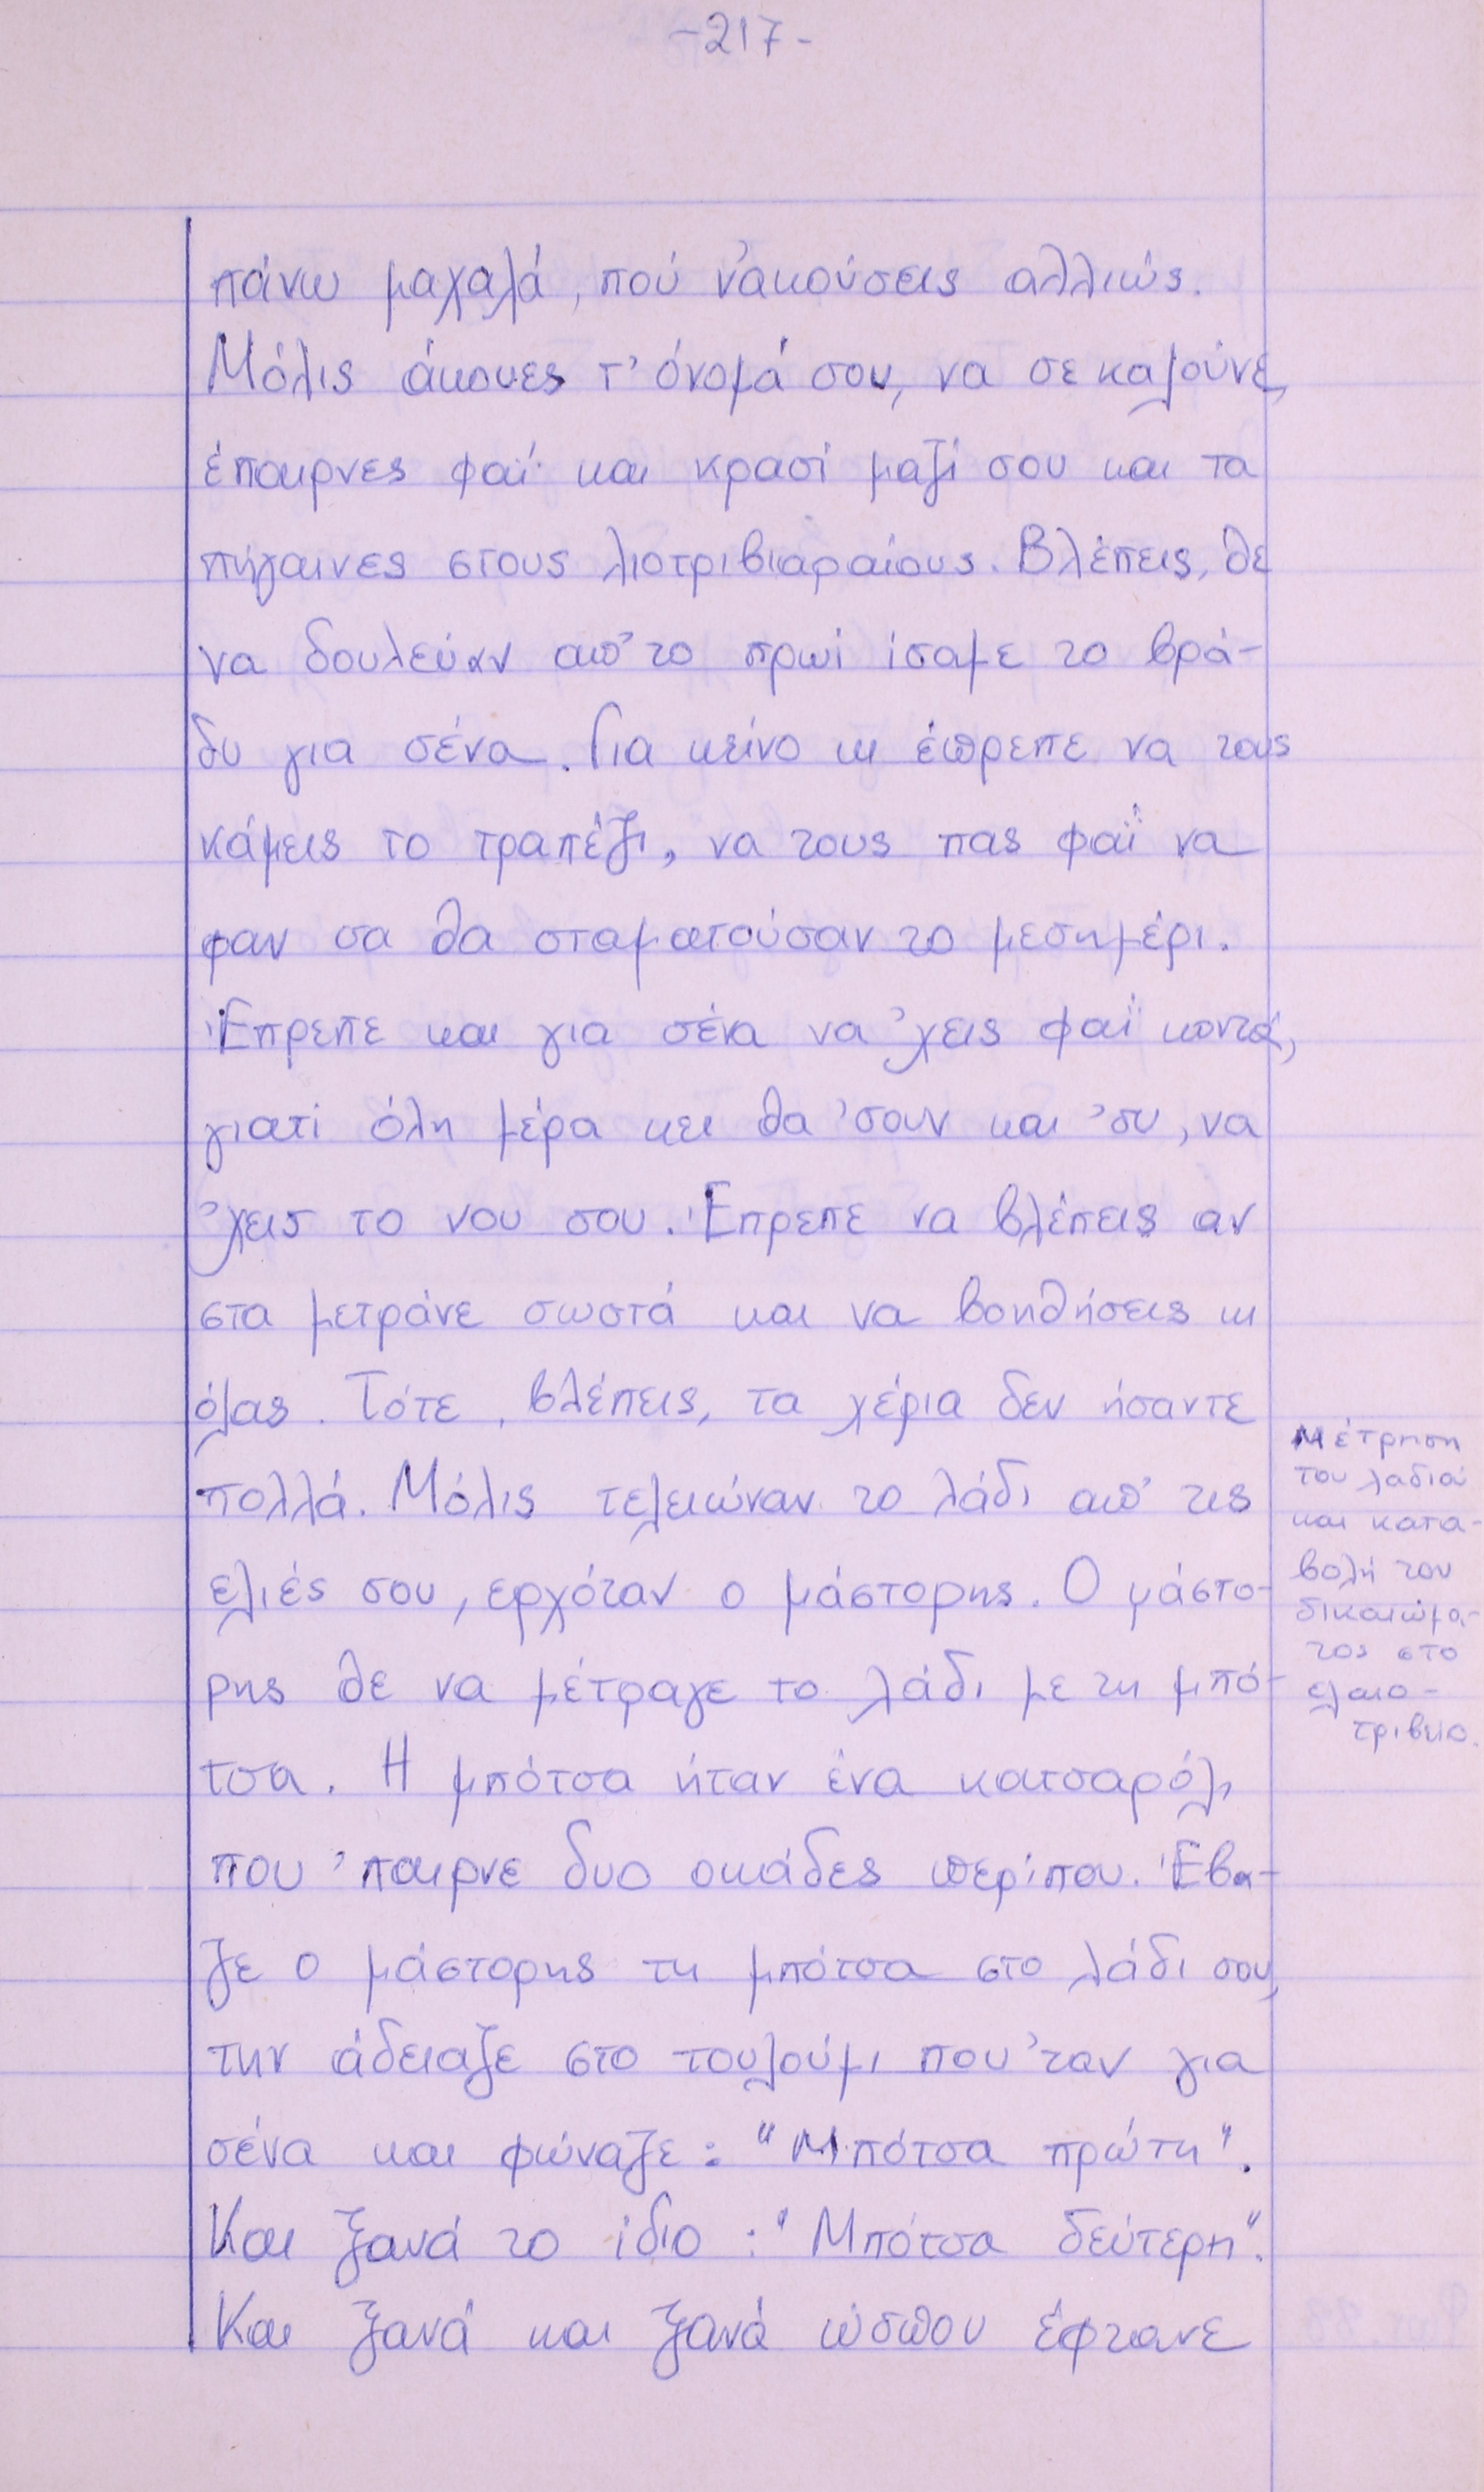 -217-
πάνω μαχαλά, πού ν'ακούσεις αλλιώς.
Μόλις άκουες τ' όνομά σου, να σε καλούνε,
έπαιρνες φαΐ και κρασί μαζί σου και τα
πήγαινες στους λιοτριβιαραίους. Βλέπεις, θε
να δουλεύαν απ' το πρωί ίσαμε το βρά-
δυ για σένα. Για κείνο κι έπρεπε να τους
κάμεις το τραπέζι, να τους πας φαΐ να
φαν σα θα σταματούσαν το μεσημέρι.
Έπρεπε και για σένα να 'χεις φαΐ κοντά,
γιατί όλη μέρα κει θα 'σουν και 'συ, να
'χεις το νου σου. Έπρεπε να βλέπεις αν
στα μετράνε σωστά και να βοηθήσεις κι
όλας. Τότε, βλέπεις, τα χέρια δεν ήσαντε
πολλά. Μόλις τελειώναν το λάδι απ' τις
ελιές σου, ερχόταν ο μάστορης. Ο μάστο-
ρης θε να μέτραγε το λάδι με τη μπό-
τσα. Η μπότσα ήταν ένα κατσαρόλι
που 'παιρνε δυο οκάδες περίπου. Έβα-
ζε ο μάστορης τη μπότσα στο λάδι σου,
την άδειαζε στο τουλούμι που 'ταν για
σένα και φώναζε: "Μπότσα πρώτη".
Και ξανά το ίδιο: "Μπότσα δεύτερη".
Και ξανά και ξανά ώσπου έφτανε
Μέτρηση
του λαδιού
και κατα-
βολή του
δικαιώμα-
τος στο
ελαιο-
τριβείο.